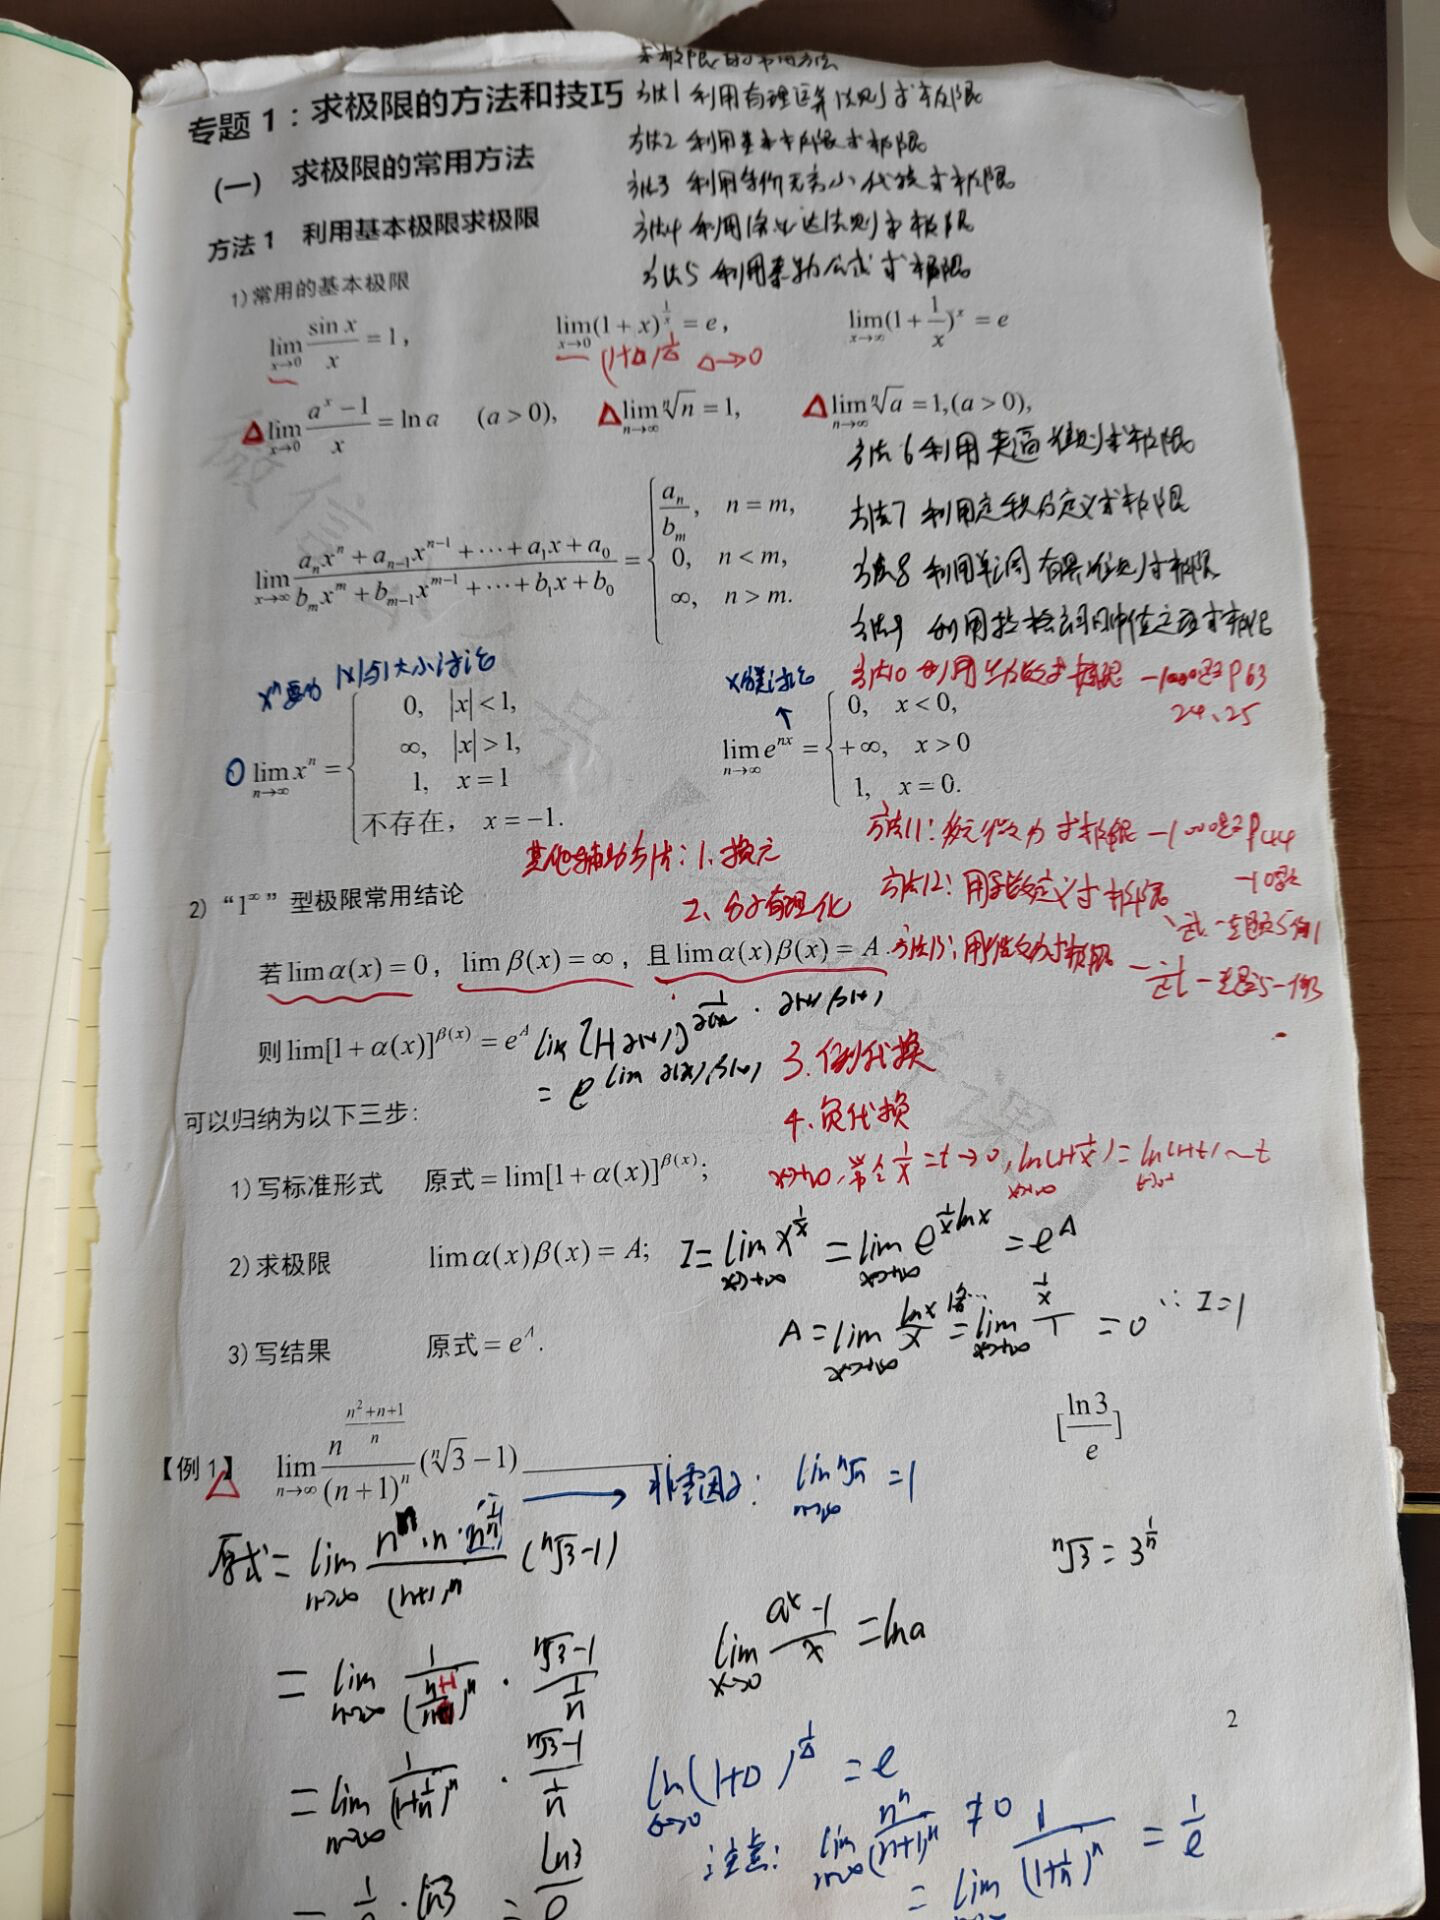 求极限的常用方法
专题 1：求极限的方法和技巧
方法1 利用有理运算法则求极限
方法2 利用基本极限求极限
(一) 求极限的常用方法
方法3 利用等价无穷小代换求极限
方法4 利用洛必达法则求极限
方法 1 利用基本极限求极限
方法5 利用泰勒公式求极限
1) 常用的基本极限
lim_{x→0} sin x / x = 1, lim_{x→0} (1 + x)^{1/x} = e, lim_{x→∞} (1 + 1/x)^x = e
(1+Δ)^{1/Δ} Δ→0
Δ lim_{x→0} (a^x − 1)/x = ln a (a > 0), Δ lim_{n→∞} ⁿ√n = 1, Δ lim_{n→∞} ⁿ√a = 1, (a > 0),
方法6 利用夹逼准则求极限
方法7 利用定积分定义求极限
方法8 利用单调有界准则求极限
方法9 利用拉格朗日中值定理求极限
lim_{x→∞} (a_n x^n + a_{n−1} x^{n−1} + ⋯ + a_1 x + a_0)/(b_m x^m + b_{m−1} x^{m−1} + ⋯ + b_1 x + b_0) = { a_n/b_m, n = m,
0, n < m,
∞, n > m.
方法10 利用级数求极限 —1000题P63
24、25
x^n要分 |x|与1大小讨论
x分类讨论
↑
① lim_{n→∞} x^n = { 0, |x| < 1,
∞, |x| > 1,
1, x = 1
不存在, x = −1.
lim_{n→∞} e^{nx} = { 0, x < 0,
+∞, x > 0
1, x = 0.
方法11: 求极限 —1000题P44
—10题
方法12: 用导数定义求极限
方法13: 用 求极限
其他辅助方法: 1、换元
2、分子有理化
2) “1^∞” 型极限常用结论
若 lim α(x) = 0, lim β(x) = ∞, 且 lim α(x)β(x) = A.
则 lim[1 + α(x)]^{β(x)} = e^A lim [1+α(x)]^{1/α(x) · α(x)β(x)}
= e^{lim α(x)β(x)}
3. 倒代换
4. 负代换
可以归纳为以下三步:
x→∞, 常令 1/x = t→0, ln(1+1/x) = ln(1+t) ~ t
1) 写标准形式 原式 = lim[1 + α(x)]^{β(x)};
2) 求极限 lim α(x)β(x) = A;
I = lim_{x→+∞} x^{1/x} = lim_{x→+∞} e^{1/x ln x} = e^A
A = lim_{x→+∞} ln x / x 洛… = lim_{x→+∞} (1/x)/1 = 0 ∴ I = 1
3) 写结果 原式 = e^A.
[ln 3 / e]
【例 1】 lim_{n→∞} n^{(n²+n+1)/n}/(n+1)^n (ⁿ√3 − 1) ________
Δ
→ 非零因子: lim_{n→∞} ⁿ√n = 1
原式 = lim_{n→∞} n^n · n · n^{1/n}/(n+1)^n (ⁿ√3 − 1)
ⁿ√3 = 3^{1/n}
= lim_{n→∞} 1/((n+1)/n)^n · (ⁿ√3 − 1)/(1/n)
lim_{x→0} (a^x − 1)/x = ln a
2
= lim_{n→∞} 1/(1+1/n)^n · (ⁿ√3 − 1)/(1/n)
ln_{Δ→0} (1+Δ)^{1/Δ} = e
注意: lim_{n→∞} n^n/(n+1)^n ≠ 0
= lim 1/(1+1/n)^n = 1/e
= 1/e · ln3 = ln3/e